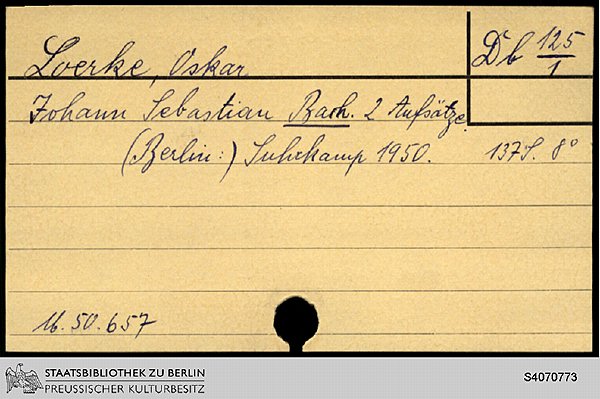 Loerke, Oskar
Db 125/1
Johann Sebastian Bach. 2 Aufsätze.
(Berlin:) Suhrkamp 1950. 137 S. 8°
16.50.657
STAATSBIBLIOTHEK ZU BERLIN
PREUSSISCHER KULTURBESITZ
S4070773